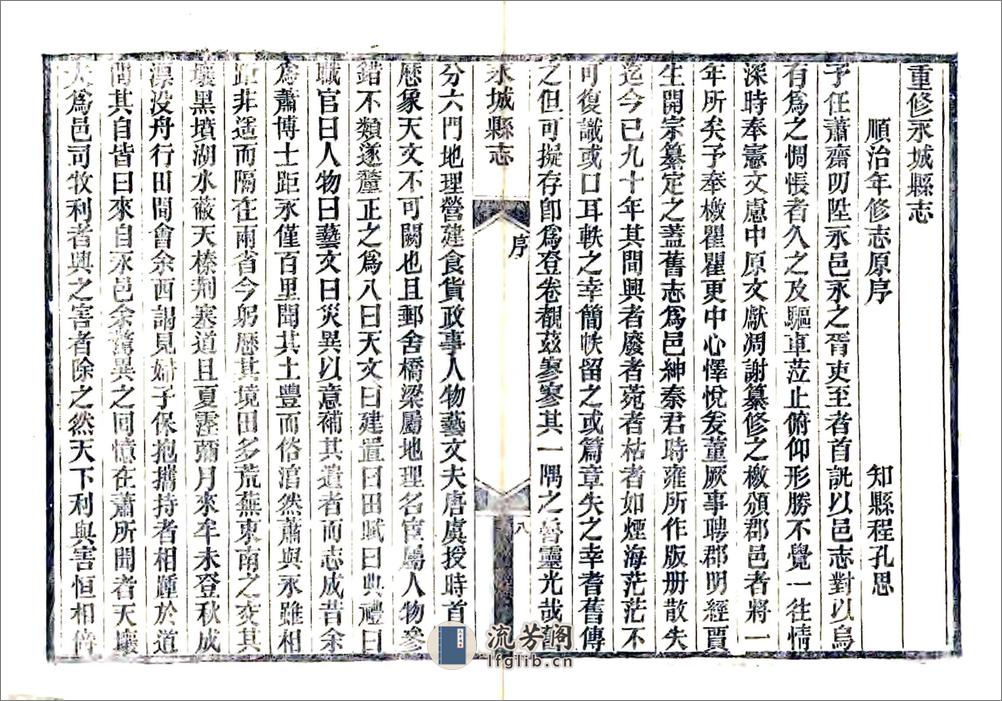 重修永城縣志
順治年修志原序　知縣程孔思
予任蕭齋叨陞永邑永之胥吏至者首訊以邑志對以烏
有爲之惆悵者久之及驅車蒞止俯仰形勝不覺一往情
深時奉憲文慮中原文獻凋謝纂修之檄頒郡邑者將一
年所矣予奉檄瞿瞿更中心懌悅爰董厥事聘郡明經賈
生開宗纂定之蓋舊志爲邑紳秦君時雍所作版册散失
迄今已九十年其間興者廢者菀者枯者如煙海茫茫不
可復識或口耳軼之幸簡帙留之或篇章失之幸耆舊傳
之但可擬存卽爲登卷覩茲寥寥其一隅之魯靈光哉舊
永城縣志
序
八
分六門地理營建食貨政事人物藝文夫唐虞授時首
歷象天文不可闕也且郵舍橋梁屬地理名宦屬人物參
錯不類遂釐正之爲八曰天文曰建置曰田賦曰典禮曰
職官曰人物曰藝文曰災異以意補其遺者而志成昔余
爲蕭博士距永僅百里聞其土豐而俗淯然蕭與永雖相
距非遥而隔在兩省今躬歷其境田多荒蕪東南之交其
壤黑墳湖水蔽天榛荆塞道且夏霪彌月來牟未登秋成
漂没舟行田間會余西謁見婦子保抱攜持者相踵於道
問其自皆曰來自永邑余驚異之回憶在蕭所聞者天壤
大爲邑司牧利者興之害者除之然天下利與害恒相倚
流芳閣
lfglib.cn